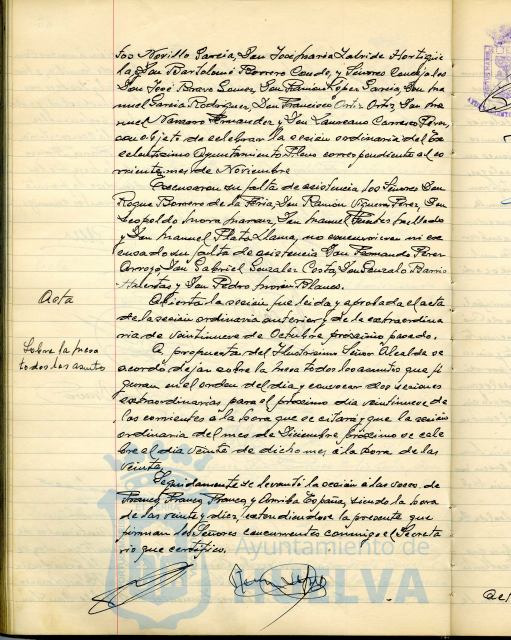 tos Novillo García, Don José María Zalvide Hortigüe
la, Don Bartolomé Borrero Conde, y Señores Concejales
Don José Bravo Gamez, Don Ramón López García, Don Ma
nuel García Rodríguez, Don Francisco Ortiz Ortiz, Don Ma
nuel Navarro Fernandez y Don Laureano Carrasco Pérez,
con objeto de celebrar la sesión ordinaria del Ex
celentísimo Ayuntamiento Pleno correspondiente al co
rriente mes de Noviembre
Excusaron su falta de asistencia los Señores Don
Roque Borrero de la Feria, Don Ramón Viguera Pérez, Don
Leopoldo Mora Don Manuel Fuentes
y Don Manuel Plata Llamas, no concurrieron ni ex
cusado su falta de asistencia Don Fernando Pérez
Arroyo, Don Gabriel Gonzalez Costa, Don Gonzalo Barrio
y Don Pedro Morón Blanco.
Acta
Abierta la sesión fue leida y aprobada el acta
de la sesión ordinaria anterior y de la extraordina
ria de veintinueve de Octubre próximo pasado.
Sobre la mesa
todos los asuntos
A propuesta del Ilustrísimo Señor Alcalde se
acordó dejar sobre la mesa todos los asuntos que fi
guran en el orden del día y convocar dos sesiones
extraordinarias para el próximo dia veintinueve de
los corrientes á la hora que se citará y que la sesión
ordinaria del mes de Diciembre próximo se cele
bre el dia veinte de dicho mes á la hora de las
veinte.
Seguidamente se levantó la sesión á las voces de
Franco, Franco, Franco, y Arriba España, siendo la hora
de las veinte y diez, extendiendose la presente que
firman los Señores concurrentes conmigo el Secreta
rio que certifico.
Ayuntamiento de
HUELVA